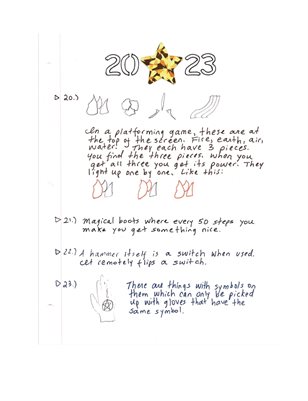 20 23
▷ 20.)
In a platforming game, these are at
the top of the screen. Fire, earth, air,
water. They each have 3 pieces.
You find the three pieces. When you
get all three you get its power. They
light up one by one. Like this:
▷ 21.) Magical boots where every 50 steps you
make you get something nice.
▷ 22.) A hammer itself is a switch when used.
It remotely flips a switch.
▷ 23.) There are things with symbols on
them which can only be picked
up with gloves that have the
same symbol.